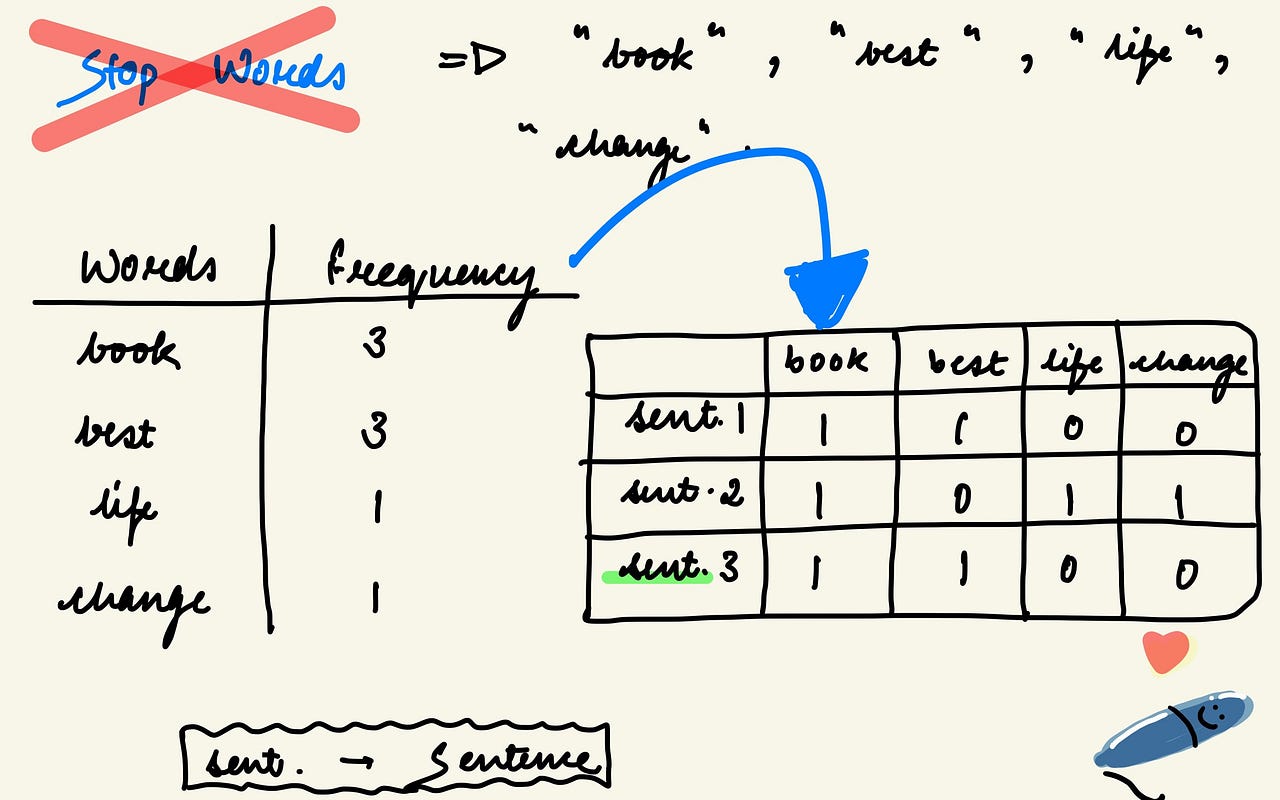 Stop Words => "book", "best", "life",
"change".
Words frequency
book 3
best 3
life 1
change 1
book best life change
sent. 1 1 1 0 0
sent. 2 1 0 1 1
sent. 3 1 1 0 0
sent. → Sentence